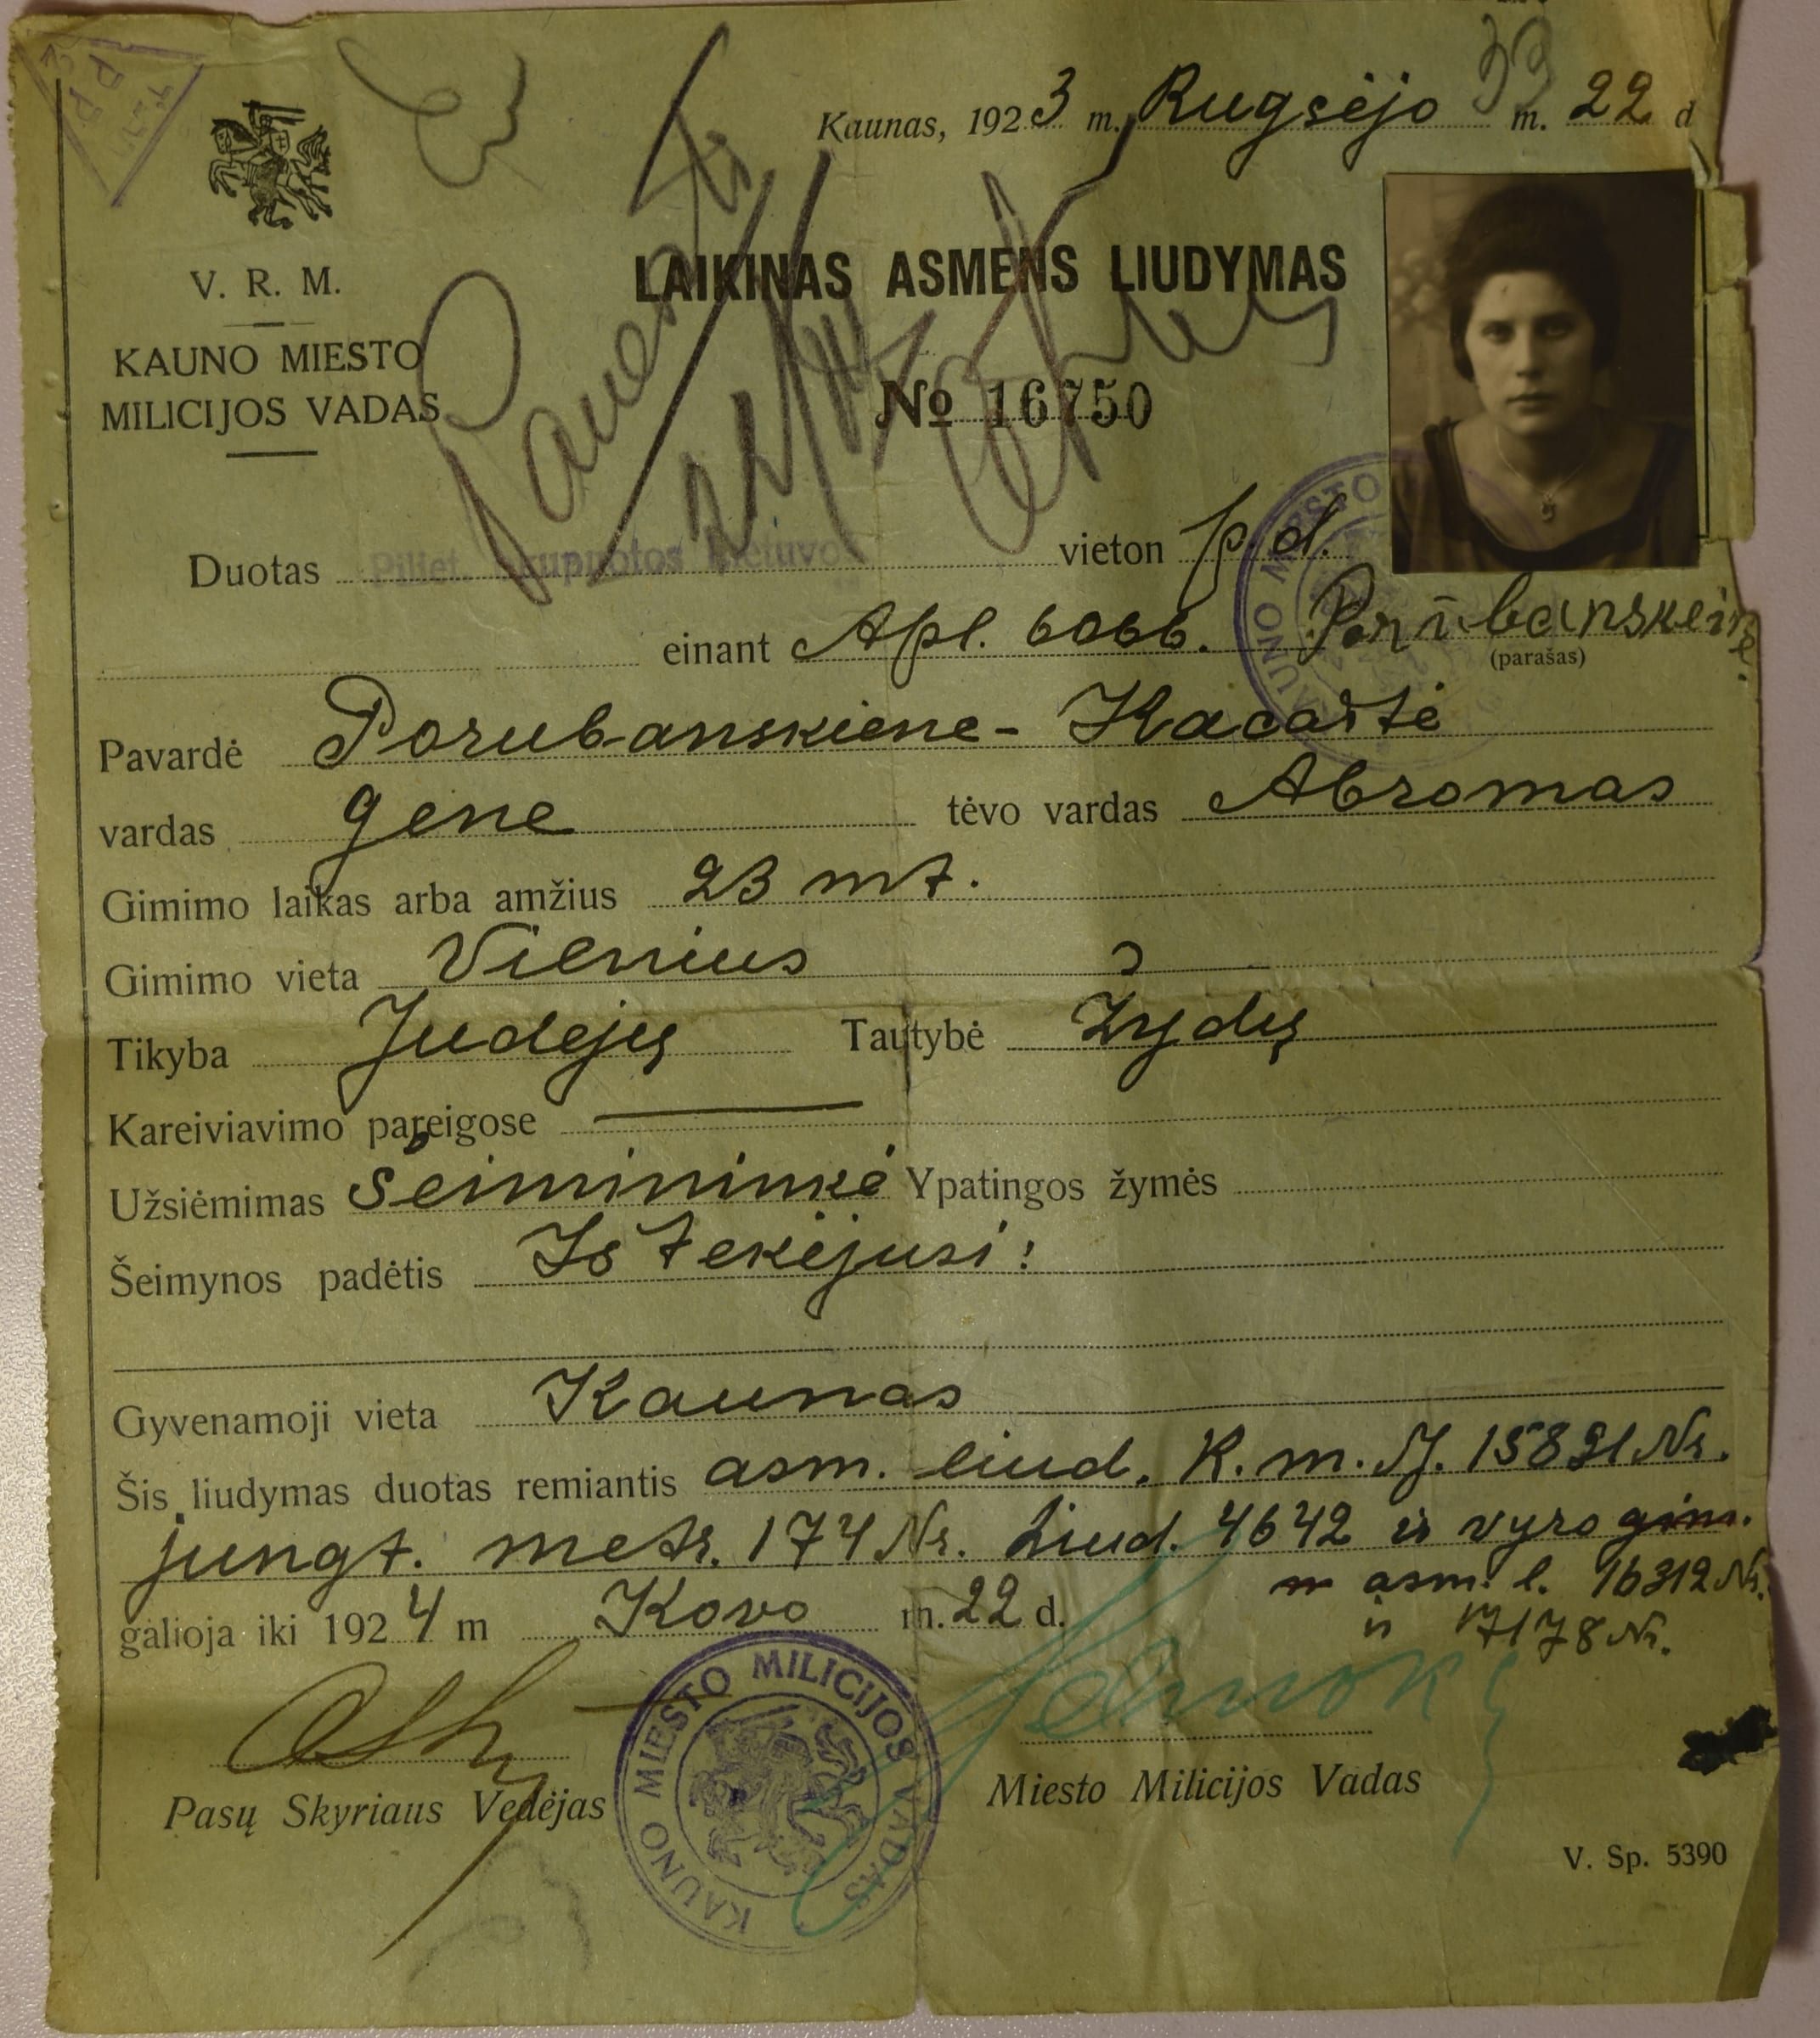 Kaunas, 1923 m. Rugsėjo m. 22 d
V. R. M.
KAUNO MIESTO
MILICIJOS VADAS
LAIKINAS ASMENS LIUDYMAS
№ 16750
Duotas Piliet. Okupuotos Lietuvos vieton p. d.
einant Apl. 6066.
(parašas)
Pavardė Porubanskiene-
vardas Gene tėvo vardas Abromas
Gimimo laikas arba amžius 23 mt.
Gimimo vieta Vilnius
Tikyba Judejų Tautybė Žydų
Kareiviavimo pareigose —
Užsiėmimas Šeimininkė Ypatingos žymės
Šeimynos padėtis Ištekėjusi:
Gyvenamoji vieta Kaunas
Šis liudymas duotas remiantis asm. liud. K. m. N. 15891 Nr.
jungt. metr. 174 Nr. Liud. 4642 ir vyro gim.
asm. l. 16312 Nr.
ir 17178 Nr.
galioja iki 1924 m Kovo m. 22 d.
KAUNO MIESTO MILICIJOS VADAS
Pasų Skyriaus Vedėjas
Miesto Milicijos Vadas
V. Sp. 5390